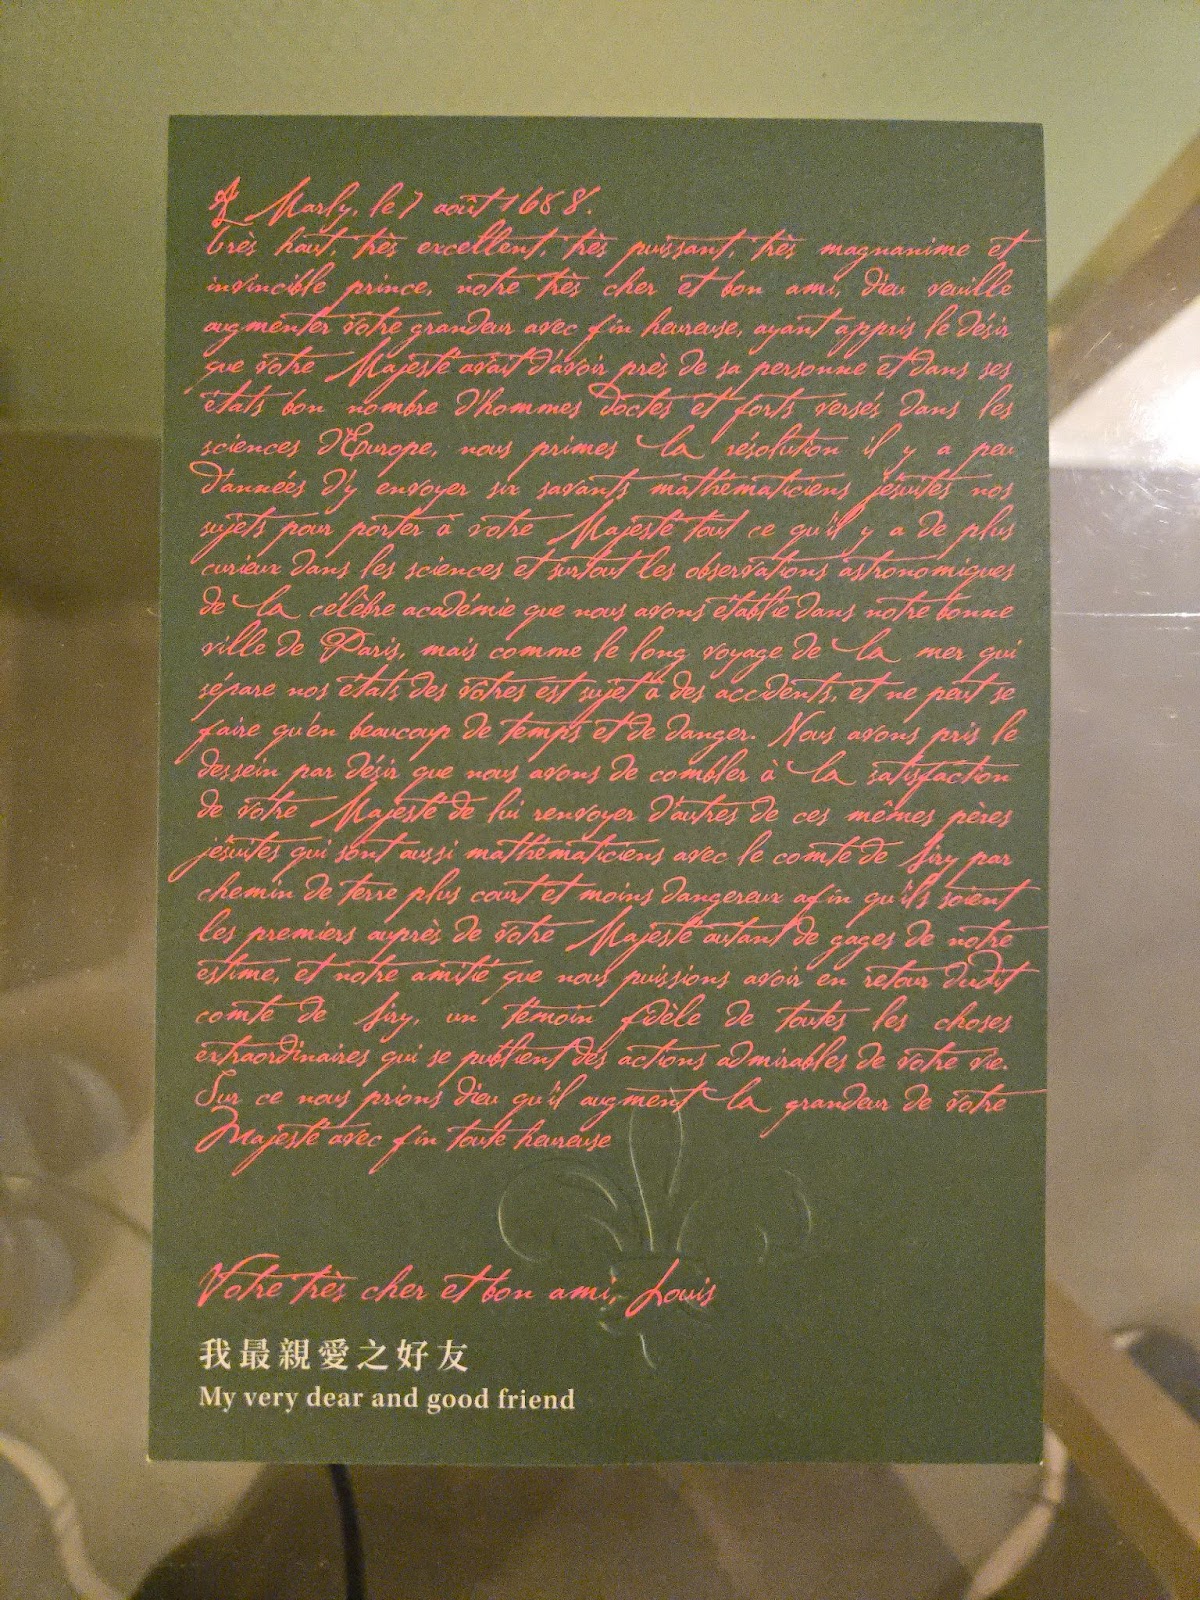 A Marly, le 7 août 1688.
Très haut, très excellent, très puissant, très magnanime et
invincible prince, notre très cher et bon ami, dieu veuille
augmenter votre grandeur avec fin heureuse, ayant appris le désir
que votre Majesté avait d'avoir près de sa personne et dans ses
états bon nombre d'hommes doctes et forts versés dans les
sciences d'Europe, nous primes la résolution il y a peu
d'années d'y envoyer six savants mathématiciens jésuites nos
sujets pour porter à votre Majesté tout ce qu'il y a de plus
curieux dans les sciences et surtout les observations astronomiques
de la célèbre académie que nous avons établie dans notre bonne
ville de Paris, mais comme le long voyage de la mer qui
sépare nos états des vôtres est sujet à des accidents, et ne peut se
faire qu'en beaucoup de temps et de danger. Nous avons pris le
dessein par désir que nous avons de combler à la satisfaction
de votre Majesté de lui renvoyer d'autres de ces mêmes pères
jésuites qui sont aussi mathématiciens avec le comte de Siry par
chemin de terre plus court et moins dangereux afin qu'ils soient
les premiers auprès de votre Majesté autant de gages de notre
estime, et notre amitié que nous puissions avoir en retour dudit
comte de Siry, un témoin fidèle de toutes les choses
extraordinaires qui se publient des actions admirables de votre vie.
Sur ce nous prions dieu qu'il augment la grandeur de votre
Majesté avec fin toute heureuse
Votre très cher et bon ami, Louis
我最親愛之好友
My very dear and good friend